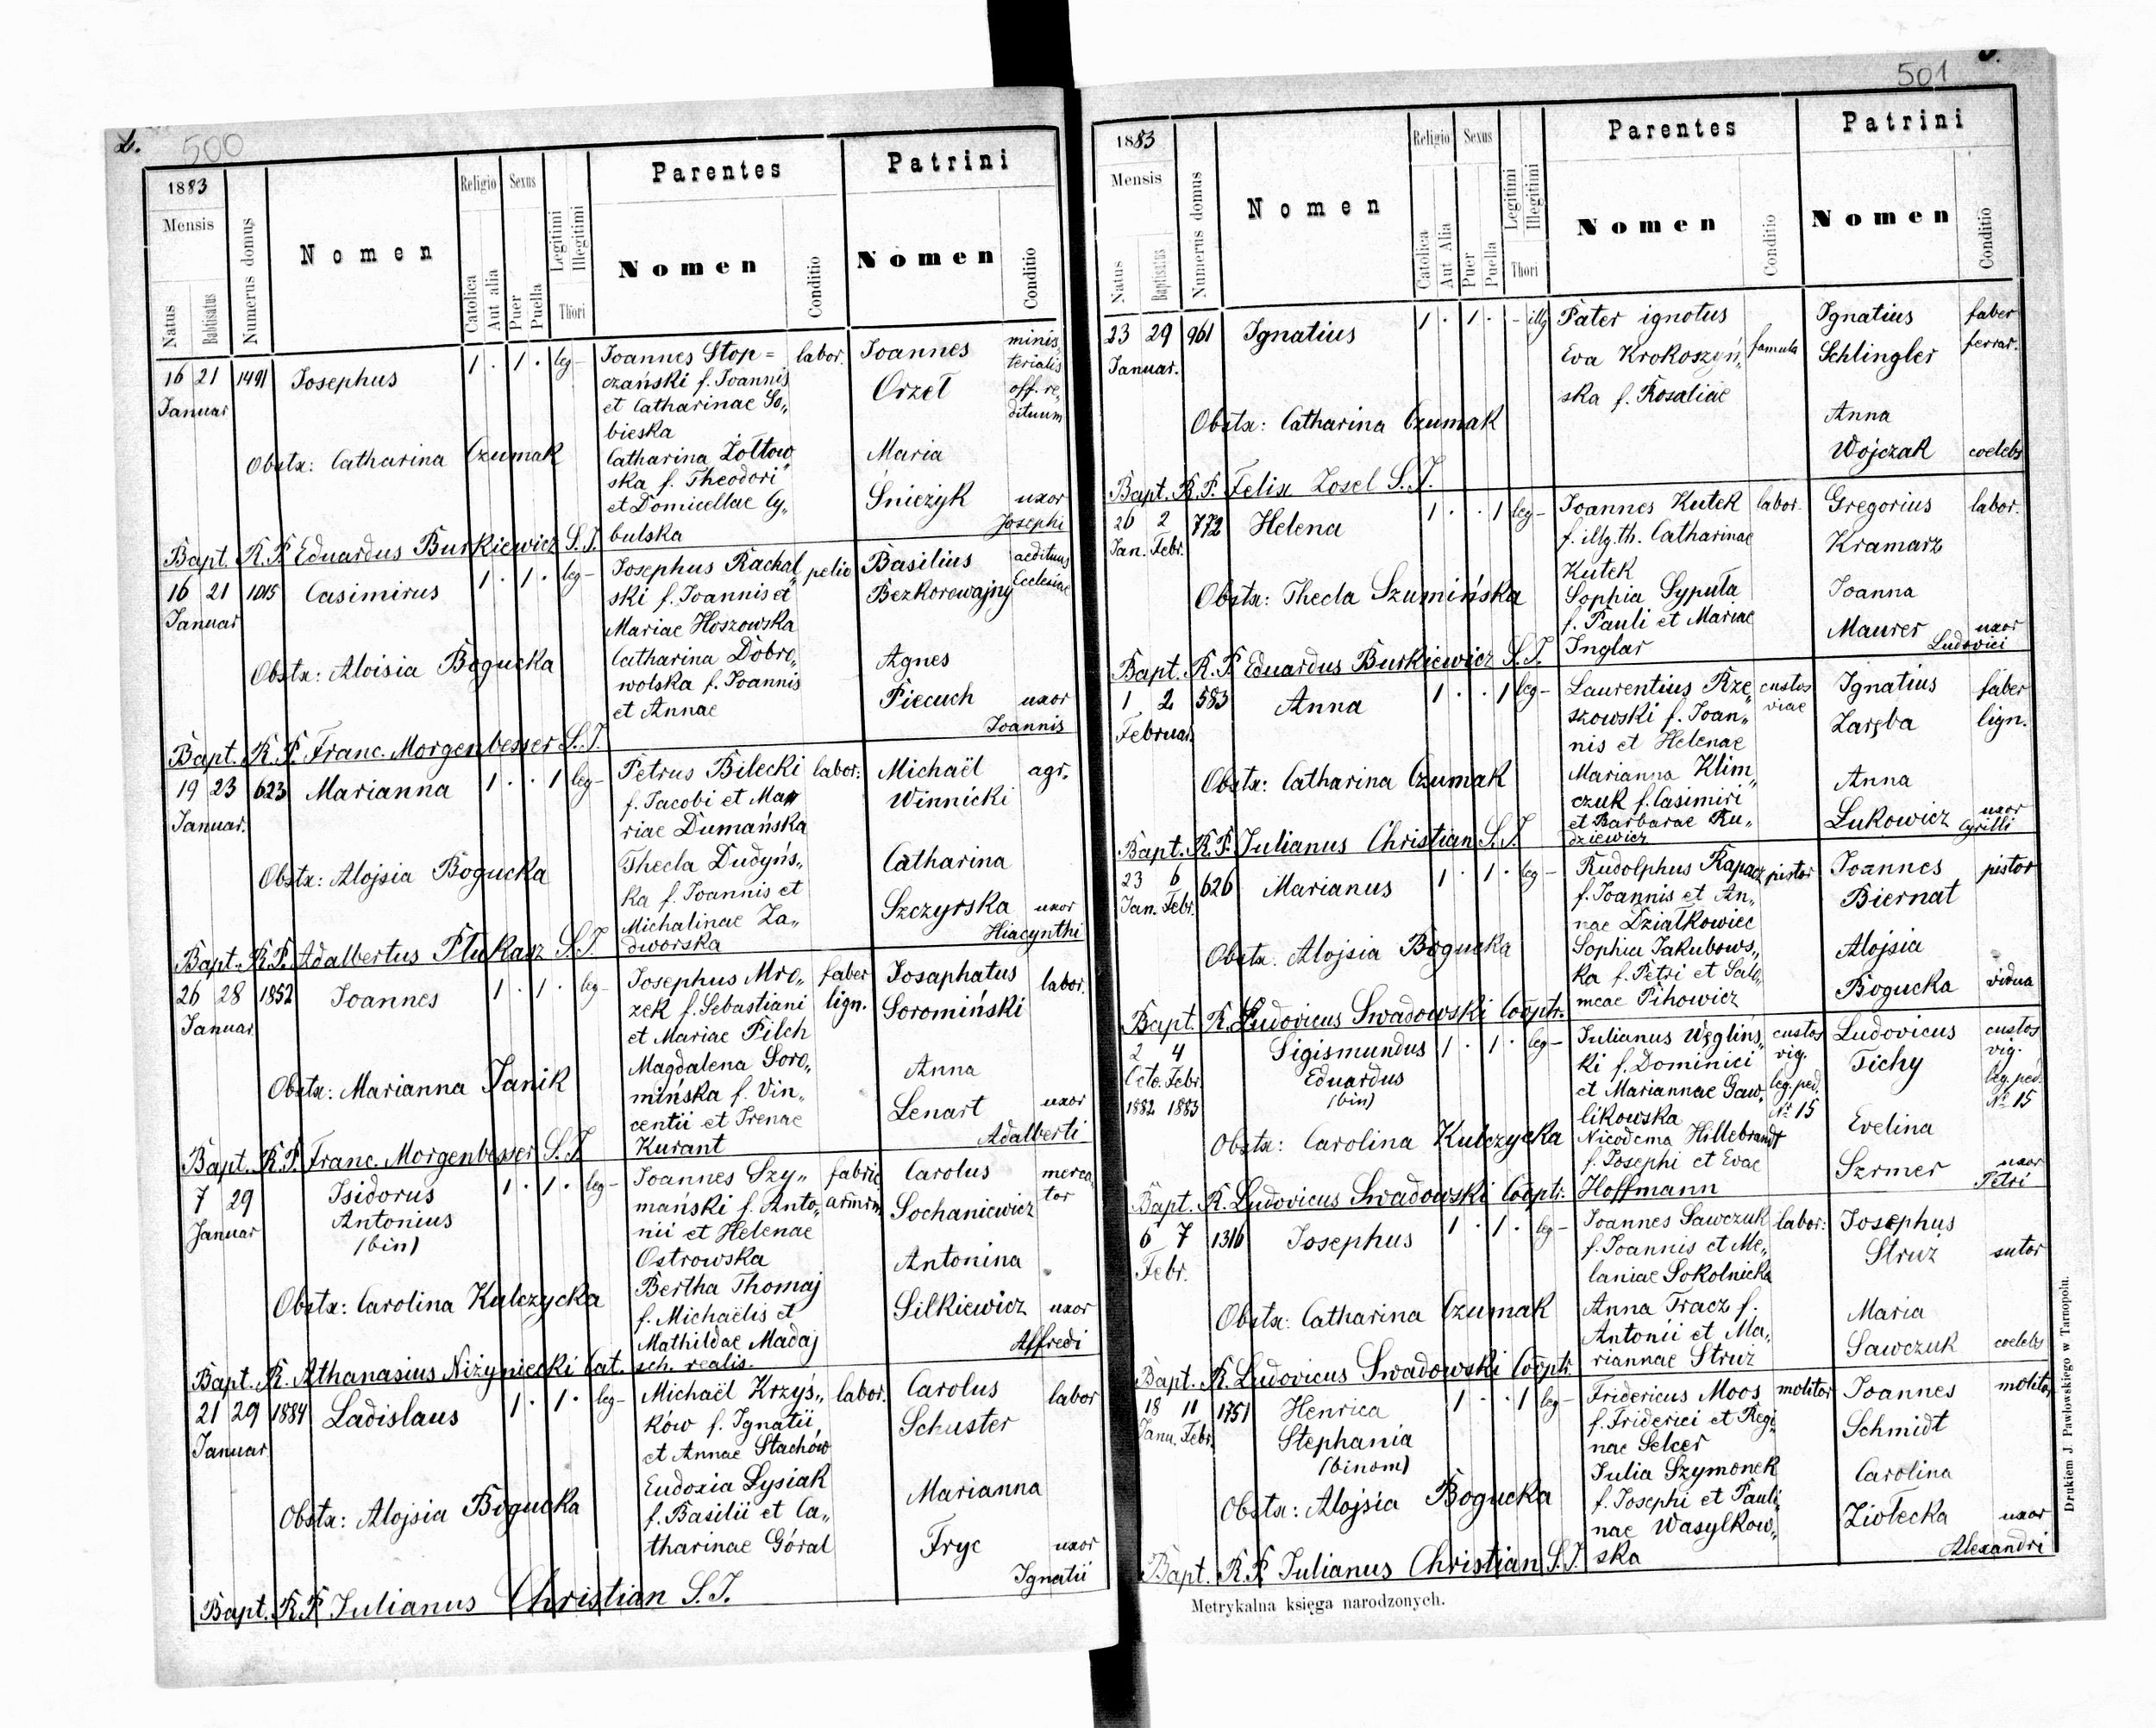 2.
500
1883
Mensis
Natus
Babtisatus
Numerus domus
Nomen
Religio
Catolica
Aut alia
Sexus
Puer
Puella
Legitimi
Illegitimi
Thori
Parentes
Nomen
Conditio
Patrini
Nomen
Conditio
16 21 1491 Josephus 1 . 1 . leg- Joannes Stop= labor. Joannes minis„
Januar czański f. Joannis Orzeł terialis
et Catharinae So„ off. re„
bieska dituum
Obstx: Catharina Czumak Catharina Żołtow„ Maria
ska f. Theodori Śnieżyk uxor
et Domicellae Cy„ Josephi
bulska
Bapt. R.P. Eduardus Burkiewicz S.J.
16 21 1015 Casimirus 1 . 1 . leg- Josephus Rachal„ pelio Basilius aedituus
Januar ski f. Joannis et Bezkorowajny Ecclesiae
Mariae Hoszowska
Obstx: Aloisia Bogucka Catharina Dobro„ Agnes
wolska f. Joannis Piecuch uxor
et Annae Joannis
Bapt. R.P. Franc. Morgenbesser S.J.
19 23 623 Marianna 1 . . 1 leg- Petrus Bilecki labor: Michaël agr.
Januar. f. Jacobi et Ma„ Winnicki
riae Dumańska
Obstx: Alojsia Bogucka Thecla Dudyńs„ Catharina
ka f. Joannis et Szczyrska uxor
Michalinae Za„ Hiacynthi
dworska
Bapt. R.P. Adalbertus Plukasz S.J.
26 28 1852 Joannes 1 . 1 . leg- Josephus Mro„ faber Josaphatus labor.
Januar zek f. Sebastiani lign. Soromiński
et Mariae Pilch
Obstx: Marianna Janik Magdalena Soro„ Anna
mińska f. Vin„ Lenart uxor
centii et Irenae Adalberti
Kurant
Bapt. R.P. Franc. Morgenbesser S.J.
7 29 Isidorus 1 . 1 . leg- Joannes Szy„ fabric Carolus merca„
Januar Antonius mański f. Anto„ armrm Sochaniewicz tor
(bin) nii et Helenae
Ostrowska Antonina
Obstx: Carolina Kulczycka Bertha Thomaj Silkiewicz uxor
f. Michaëlis et Alfredi
Mathildae Madaj
Bapt. R. Athanasius Niżyniecki Cat. sch. realis.
21 29 1884 Ladislaus 1 . 1 . leg- Michaël Krzyś„ labor. Carolus labor
Januar ków f. Ignatii Schuster
et Annae Stachów
Obstx: Alojsia Bogucka Eudoxia Łysiak Marianna
f. Basilii et Ca„ Fryc uxor
tharinae Góral Ignatii
Bapt. R.P. Julianus Christian S.J.
501
3.
1883
Mensis
Natus
Baptisatus
Numerus domus
Nomen
Religio
Catolica
Aut Alia
Sexus
Puer
Puella
Legitimi
Illegitimi
Thori
Parentes
Nomen
Conditio
Patrini
Nomen
Conditio
23 29 961 Ignatius 1 . 1 . - illg Pater ignotus Ignatius faber
Januar. Eva Krokoszyń„ famula Schlingler ferrar.
ska f. Rosaliae
Obstx: Catharina Czumak Anna
Wojczak coelebs
Bapt. R.P. Felix Zosel S.J.
26 2 772 Helena 1 . . 1 leg- Joannes Kutek labor. Gregorius labor.
Jan. Febr. f. illg. th. Catharinae Kramarz
Kutek
Obstx: Thecla Szumińska Sophia Syputa Joanna
f. Pauli et Mariae Maurer uxor
Inglar Ludovici
Bapt. R.P. Eduardus Burkiewicz S.J.
1 2 583 Anna 1 . . 1 leg- Laurentius Rze„ custos Ignatius faber
Februar. szowski f. Joan„ viae Zaręba lign.
nis et Helenae
Obstx: Catharina Czumak Marianna Klim„ Anna
czuk f. Casimiri Łukowicz uxor
et Barbarae Ru„ Cyrilli
dziewicz
Bapt. R.P. Julianus Christian S.J.
23 6 626 Marianus 1 . 1 . leg- Rudolphus Kapacz pistor Joannes pistor
Jan. Febr. f. Joannis et An„ Biernat
nae Działkowiec
Obstx. Alojsia Bogucka Sophia Jakubows„ Alojsia
ka f. Petri et Salo„ Bogucka vidua
meae Pihowicz
Bapt. R. Ludovicus Swadowski Cooptr.
2 4 Sigismundus 1 . 1 . leg- Julianus Węglińs„ custos Ludovicus custos
Octo. Febr. Eduardus ki f. Dominici vig. Tichy vig.
1882 1883 (bin) et Mariannae Gaw„ leg. ped. leg. ped.
likowska № 15 № 15
Obstx: Carolina Kulczycka Nicodema Hillebrandt Evelina
f. Josephi et Evae Szrmer uxor
Hoffmann Petri
Bapt. R. Ludovicus Swadowski Cooptr.
6 7 1316 Josephus 1 . 1 . leg- Joannes Sawczuk labor: Josephus
Febr. f. Joannis et Me„ Struż sutor
laniae Sokolnicka
Obstx: Catharina Czumak Anna Tracz f. Maria
Antonii et Ma„ Sawczuk coelebs
riannae Struż
Bapt. R. Ludovicus Swadowski Cooptr.
18 11 1751 Henrica 1 . . 1 leg- Fridericus Moos molitor Joannes molitor
Janu. Febr. Stephania f. Friderici et Regi„ Schmidt
(binom) nae Selcer
Julia Szymonek Carolina
Obstx: Alojsia Bogucka f. Josephi et Pauli„ Ziołecka uxor
nae Wasylkow„ Alexandri
ska
Bapt. R.P. Julianus Christian S.J.
Metrykalna księga narodzonych.
Drukiem J. Pawłowskiego w Tarnopolu.